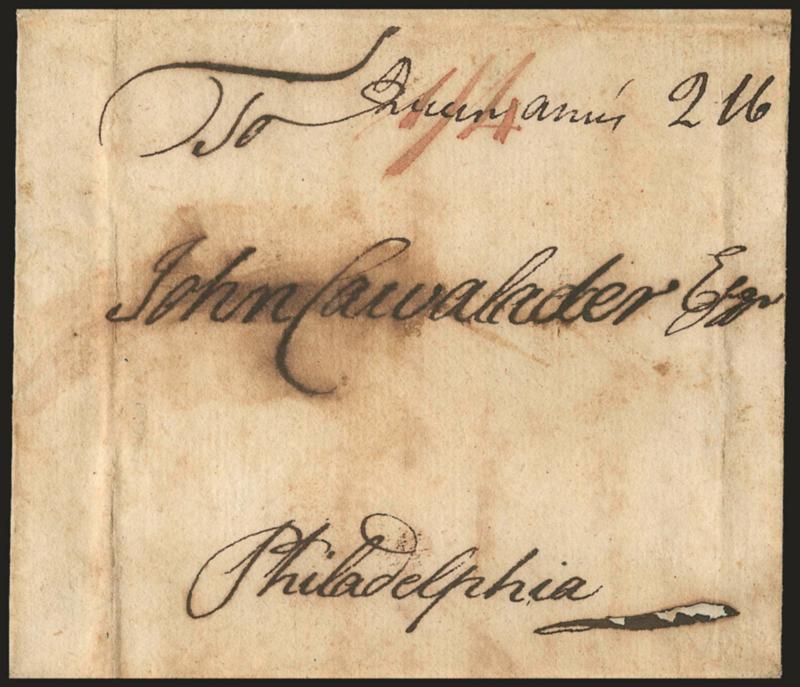 To 1/4 2 16
John Cawalader Esqr
Philadelphia